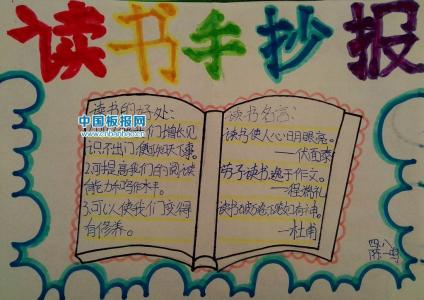 读书手抄报
中国板报网
www.cnbanbao.cn
读书的好处:
们增长见
识不出门便知天下事。
2.可提高我们的阅读
能力和写作水平。
3.可以使我们变得
有修养。
读书名言:
读书使人心明眼亮。
——伏
劳于读书,逸于作文。
——程端礼
读书破万卷下笔如有神。
——杜甫
四八